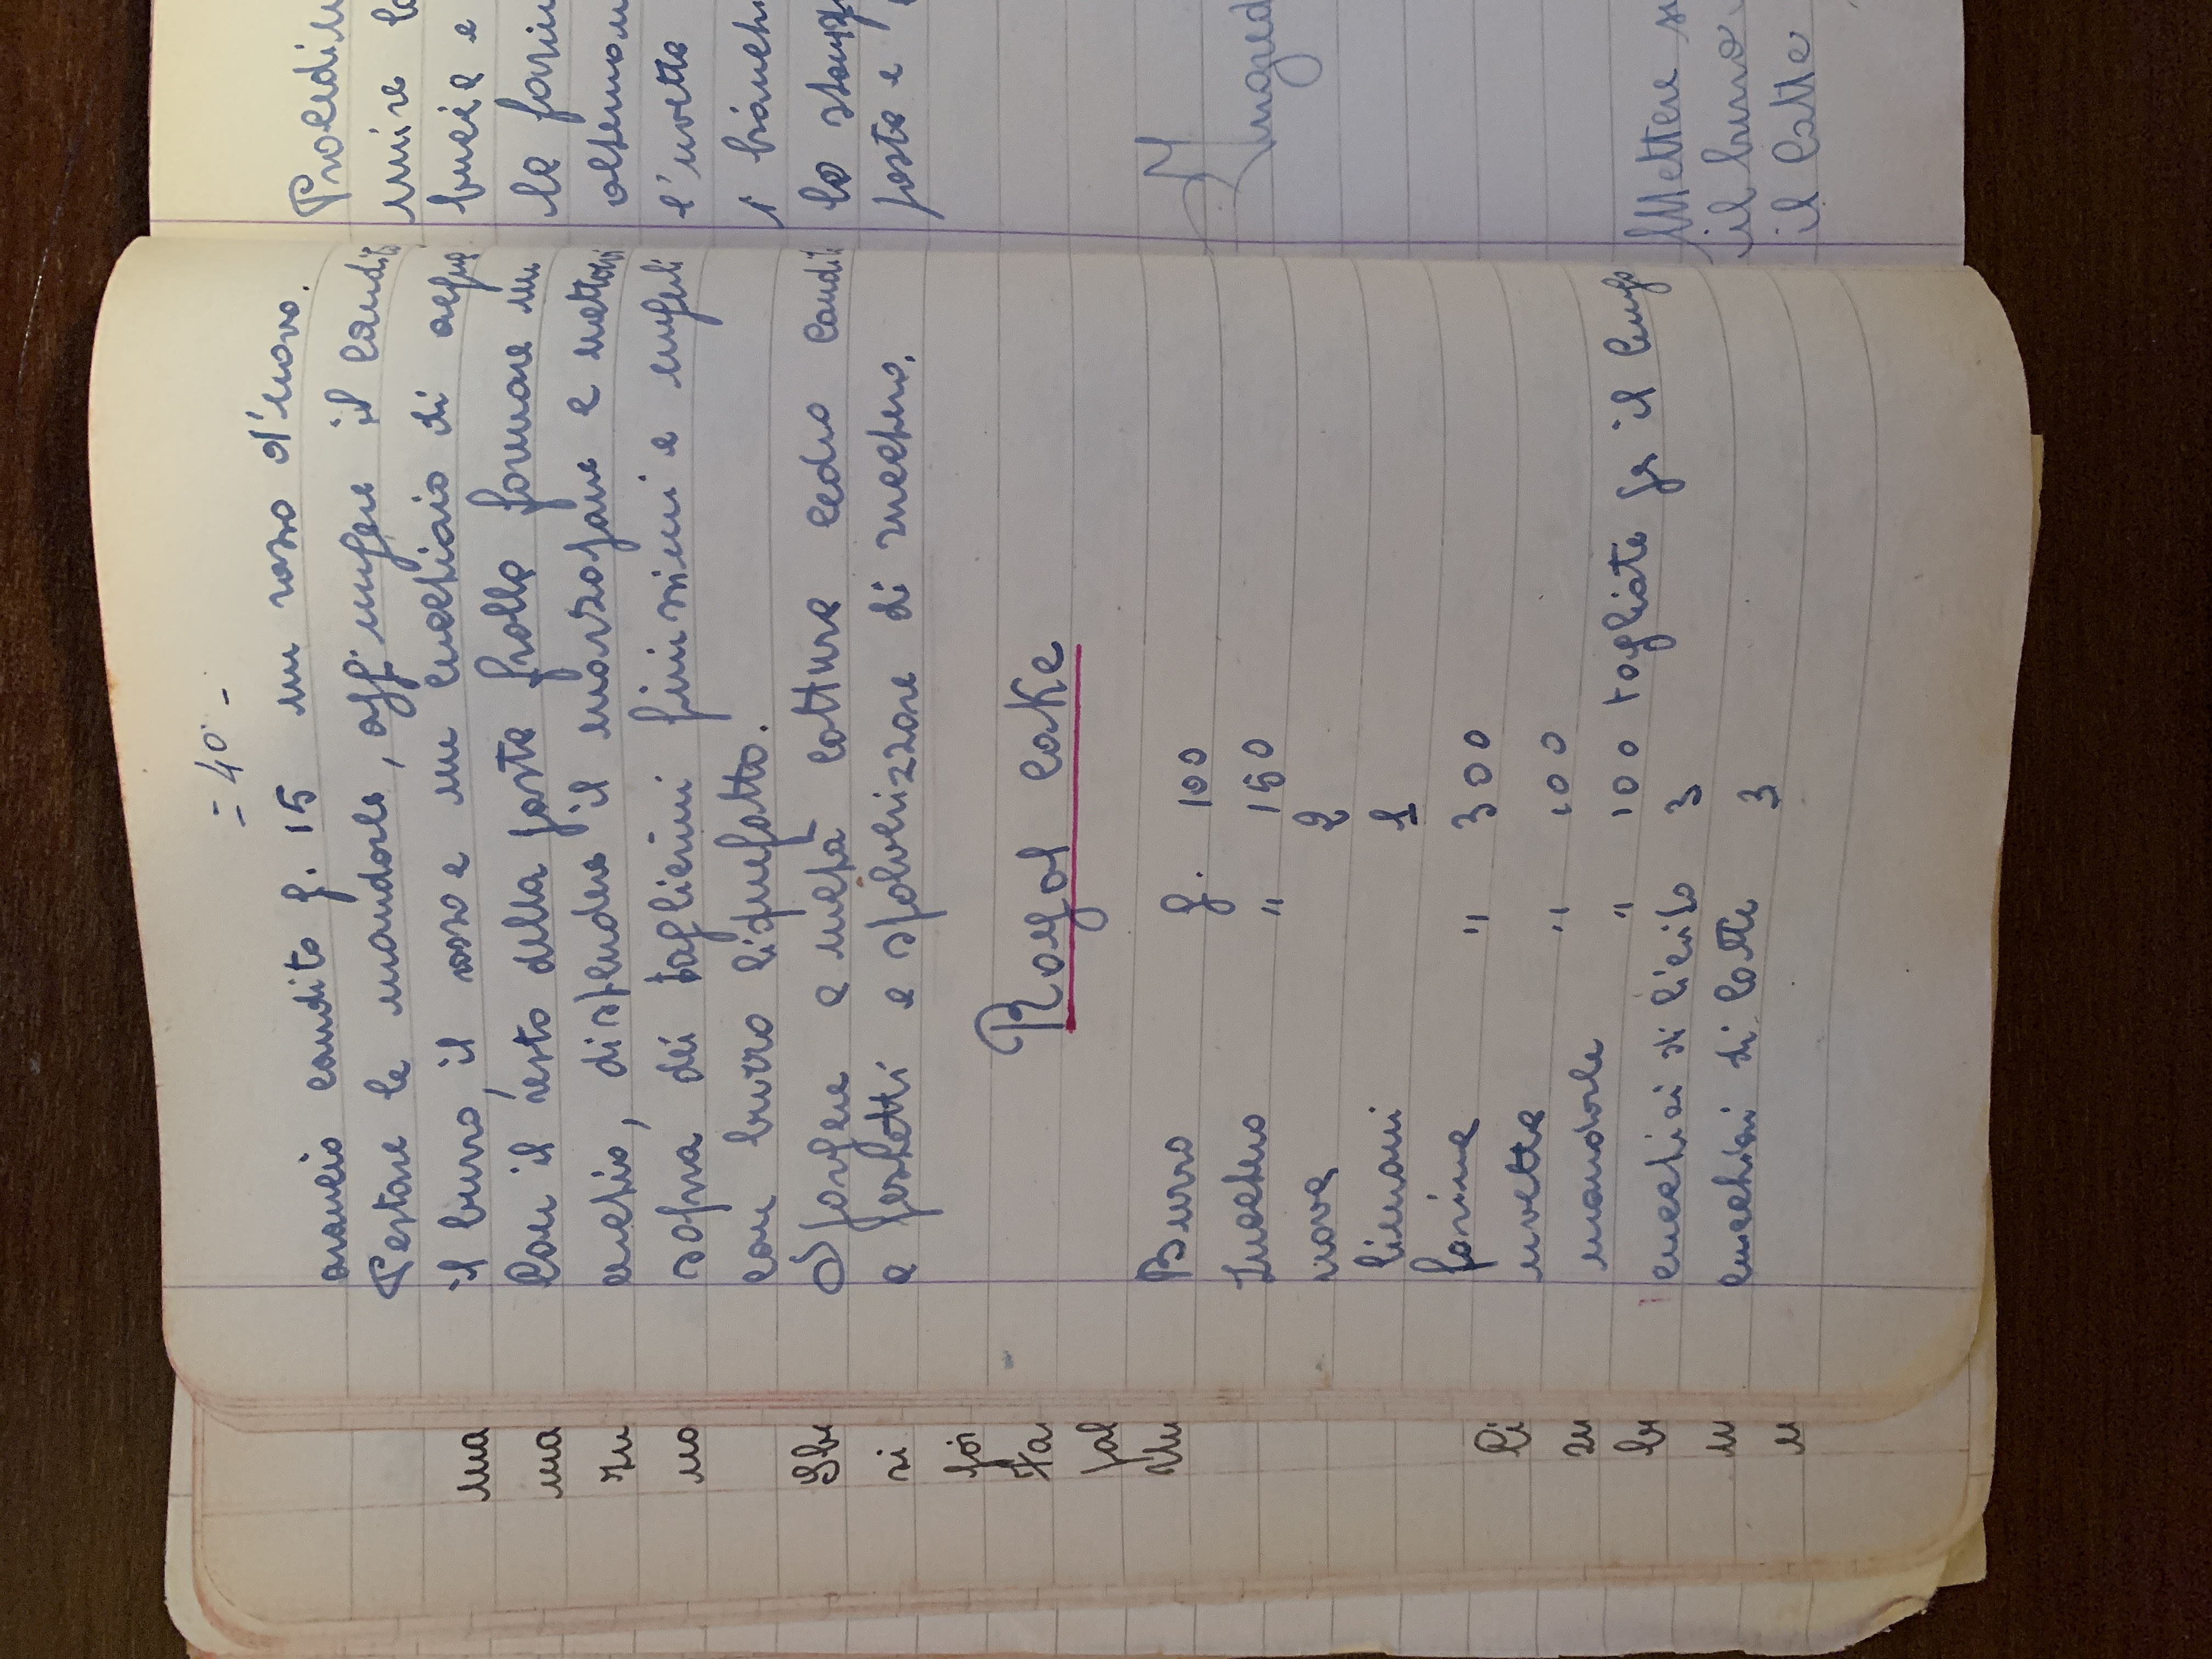 = 40 -
arancio candito g. 15 un rosso d'uovo.
Pestare le mandorle, aggiungere il candito
il burro, il rosso e un cucchiaio di acqua
Con il resto della pasta frolla formare un
cerchio, distendere il marzapane e mettervi
sopra dei taglierini finissimi e ungerli
con burro liquefatto.
Spargere a metà cottura cedro candito
a pezzetti e spolverizzare di zucchero.
Royal cake
Burro g. 100
Zucchero " 150
uova 2
limoni 1
farina " 300
uvetta " 100
mandorle " 100 tagliate per il lungo
cucchiai di lievito 3
cucchiai di latte 3
ma
ma
no
si
Procedim
unire
bucce e
la farin
alternan
l'uvetta
i bianchi
lo
pasta e
Ingred
Mettere su
il burro
il latte